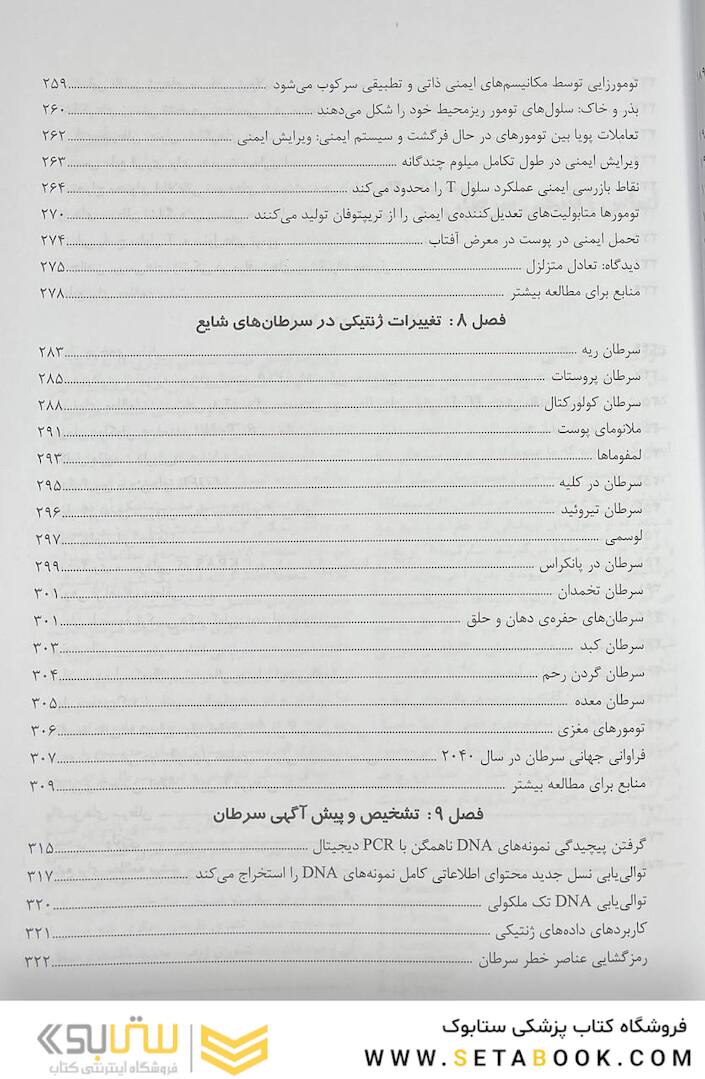 تومورزایی توسط مکانیسم‌های ایمنی ذاتی و تطبیقی سرکوب می‌شود ۲۵۹
بذر و خاک: سلول‌های تومور ریزمحیط خود را شکل می‌دهند ۲۶۰
تعاملات پویا بین تومورهای در حال فرگشت و سیستم ایمنی: ویرایش ایمنی ۲۶۲
ویرایش ایمنی در طول تکامل میلوم چندگانه ۲۶۳
نقاط بازرسی ایمنی عملکرد سلول T را محدود می‌کند ۲۶۴
تومورها متابولیت‌های تعدیل‌کننده‌ی ایمنی را از تریپتوفان تولید می‌کنند ۲۷۰
تحمل ایمنی در پوست در معرض آفتاب ۲۷۴
دیدگاه: تعادل متزلزل ۲۷۵
منابع برای مطالعه بیشتر ۲۷۸
فصل ۸: تغییرات ژنتیکی در سرطان‌های شایع
سرطان ریه ۲۸۳
سرطان پروستات ۲۸۵
سرطان کولورکتال ۲۸۸
ملانومای پوست ۲۹۱
لمفوماها ۲۹۳
سرطان در کلیه ۲۹۵
سرطان تیروئید ۲۹۶
لوسمی ۲۹۷
سرطان در پانکراس ۲۹۹
سرطان تخمدان ۳۰۱
سرطان‌های حفره‌ی دهان و حلق ۳۰۱
سرطان کبد ۳۰۳
سرطان گردن رحم ۳۰۴
سرطان معده ۳۰۵
تومورهای مغزی ۳۰۶
فراوانی جهانی سرطان در سال ۲۰۴۰ ۳۰۷
منابع برای مطالعه بیشتر ۳۰۹
فصل ۹: تشخیص و پیش آگهی سرطان
گرفتن پیچیدگی نمونه‌های DNA ناهمگن با PCR دیجیتال ۳۱۵
توالی‌یابی نسل جدید محتوای اطلاعاتی کامل نمونه‌های DNA را استخراج می‌کند ۳۱۷
توالی‌یابی DNA تک ملکولی ۳۲۰
کاربردهای داده‌های ژنتیکی ۳۲۱
رمزگشایی عناصر خطر سرطان ۳۲۲
فروشگاه کتاب پزشکی ستابوک
WWW.SETABOOK.COM
ستابوک
فروشگاه اینترنتی کتاب